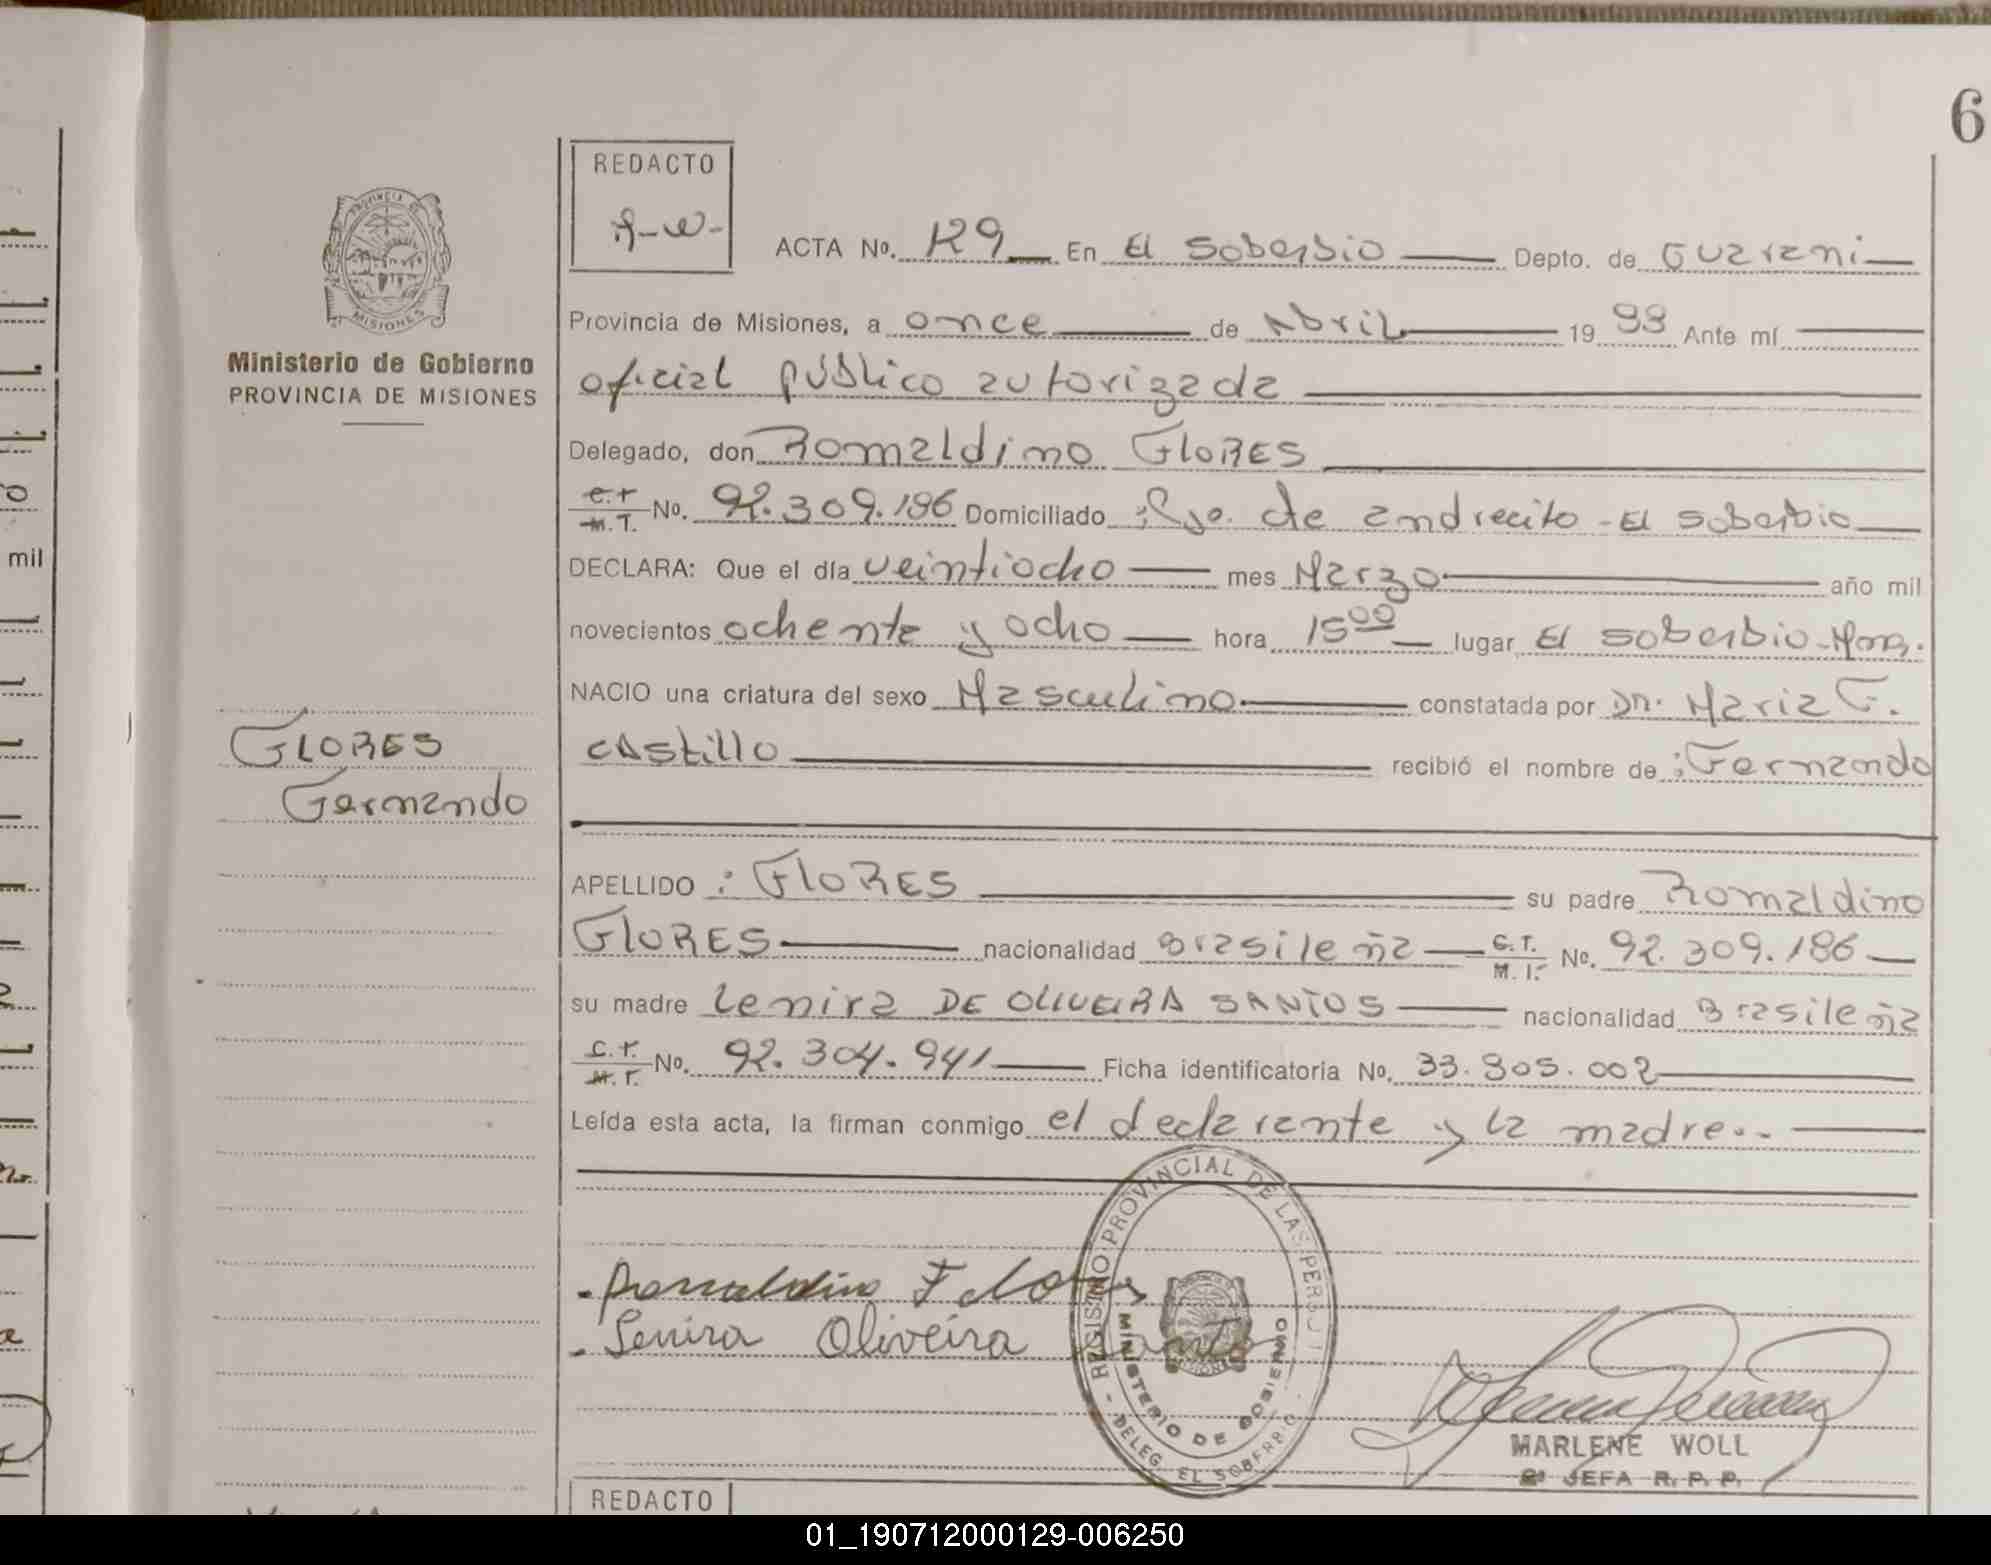 6
REDACTO
A-W-
PROVINCIA DE
MISIONES
Ministerio de Gobierno
PROVINCIA DE MISIONES
ACTA No. 129 En El Soberbio Depto. de Guarani
Provincia de Misiones, a once de Abril 19 88 Ante mí
oficial público autorizada
Delegado, don Romaldino FLORES
C.I. M.I. No. 92.309.186 Domiciliado: de andrecito - El Soberbio
DECLARA: Que el día veintiocho mes Marzo año mil
novecientos ochenta y ocho hora 15 00 lugar El Soberbio-Mnes.
NACIO una criatura del sexo Masculino constatada por Dr. Maria F.
CAStillo recibió el nombre de: Fernando
FLORES
Fernando
APELLIDO: FLORES su padre Romaldino
FLORES nacionalidad Brasileña C.I. M.I. No. 92.309.186
su madre Lenira DE OLIVEIRA SANTOS nacionalidad Brasileña
C.I. M.I. No. 92.304.941 Ficha identificatoria No. 33.305.002
Leída esta acta, la firman conmigo el declarante y la madre..
Romaldino Flores
Lenira Oliveira Santo
REGISTRO PROVINCIAL DE LAS PERS.
MINISTERIO DE GOBIERNO
DELEG. EL SOBERBIO
MARLENE WOLL
2ª JEFA R. P. P.
REDACTO
mil
01_190712000129-006250